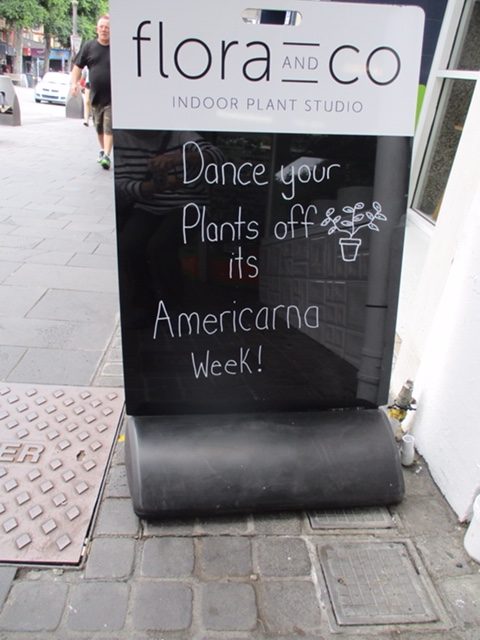 flora AND co
INDOOR PLANT STUDIO
Dance your
Plants off
its
Americarna
Week!
ER